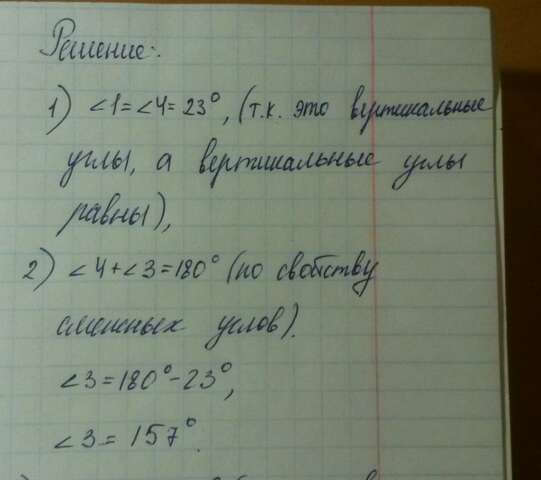 Решение:
1) ∠1=∠4=23°, (т.к. это вертикальные
углы, а вертикальные углы
равны),
2) ∠4+∠3=180° (по свойству
смежных углов).
∠3=180°-23°,
∠3=157°.